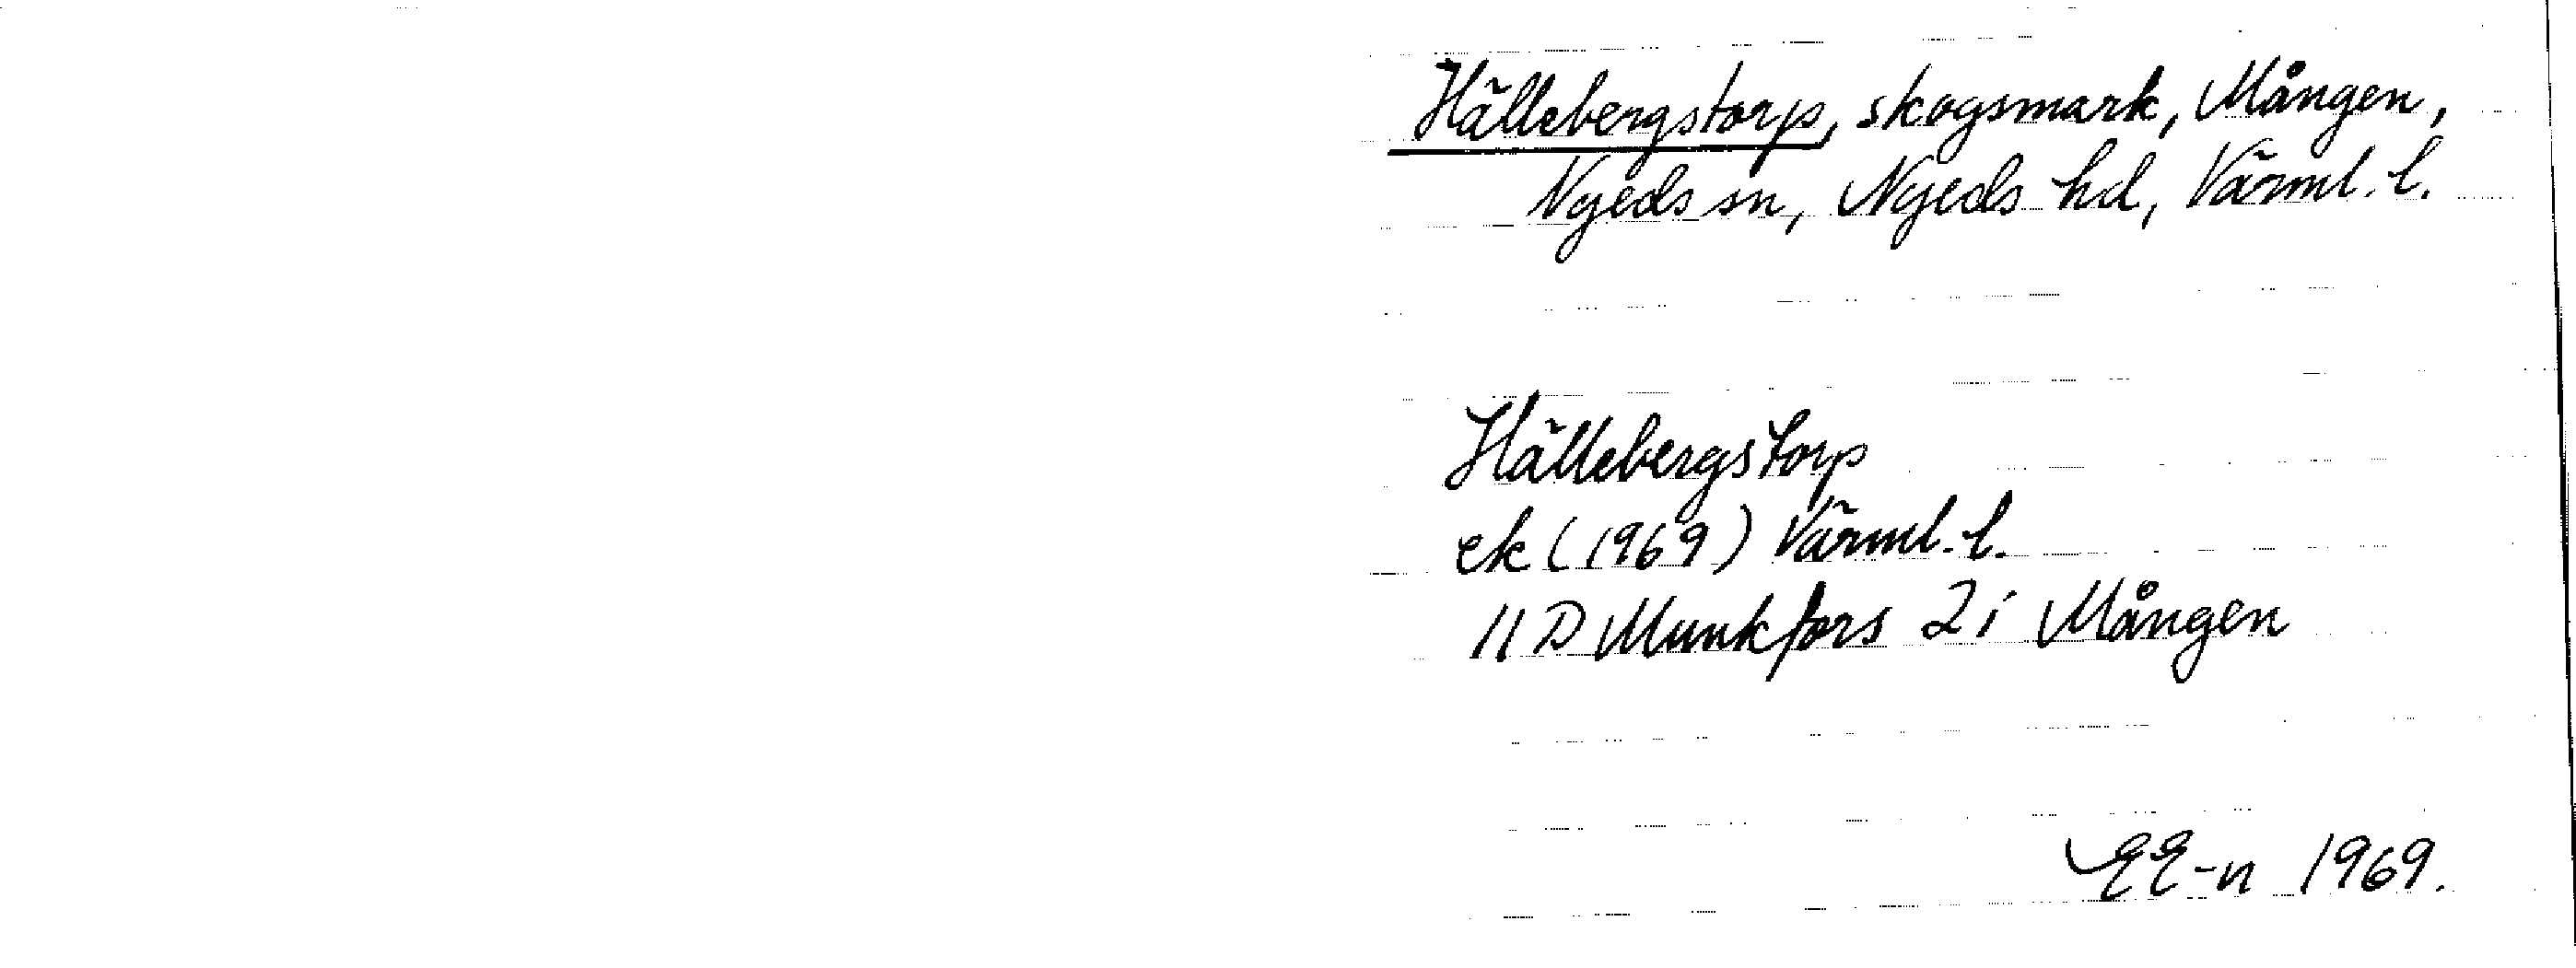 Hällebergstorp, skogsmark, Mången,
Nyeds sn, Nyeds hd, Värml. l.
Hällebergstorp
ek (1969) Värml. l.
11 D Munkfors 2 i Mången
EE-n 1969.